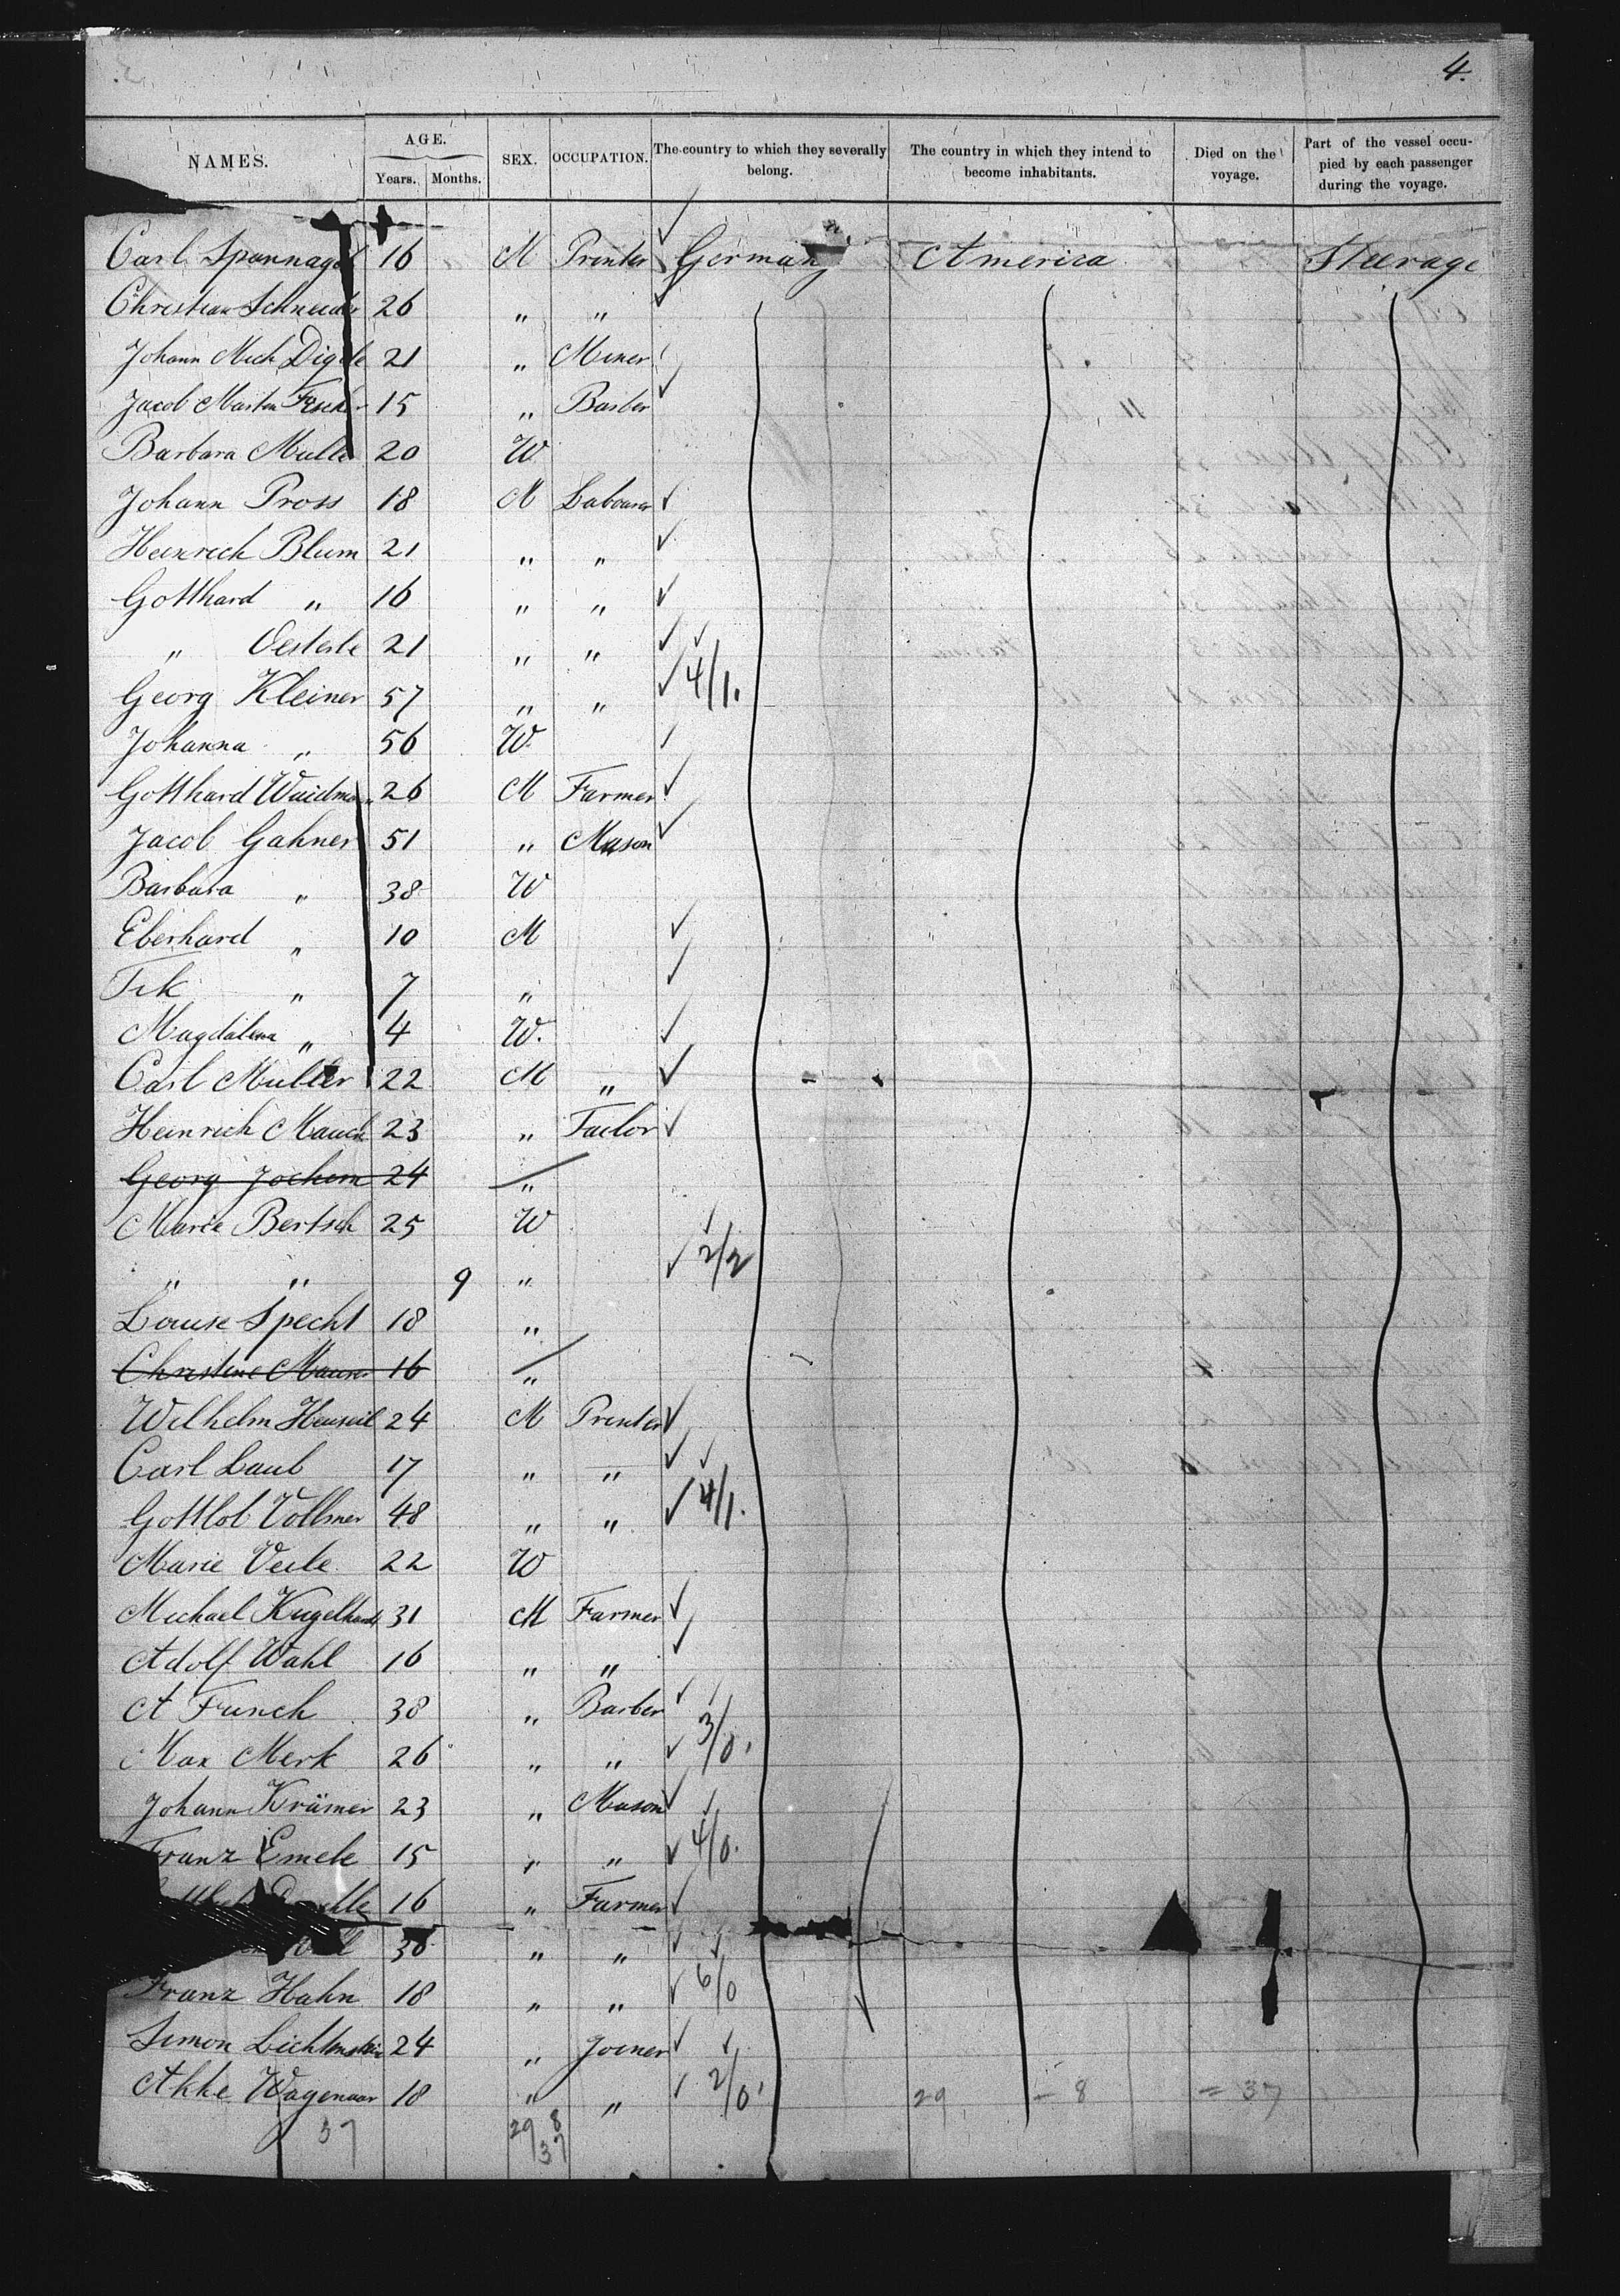 4.
NAMES. AGE. Years. Months. SEX. OCCUPATION. The country to which they severally belong. The country in which they intend to become inhabitants. Died on the voyage. Part of the vessel occupied by each passenger during the voyage.
Carl Spannagel 16 M Printer Germany America Steerage
Christian Schneider 26 " "
Johann Mich Digele 21 " Miner
Jacob Martin 15 " Barber
Barbara Muller 20 W
Johann Pross 18 M Labourer
Heinrich Blum 21 " "
Gotthard " 16 " "
" Oesterle 21 " "
Georg Kleiner 57 " " 4/1.
Johanna " 56 W
Gotthard Waidmann 26 M Farmer
Jacob Gahner 51 " Mason
Barbara " 38 W
Eberhard " 10 M
" 7 "
Magdalena " 4 W.
Carl Muller 22 M "
Heinrich Mauch 23 " Tailor
Georg Jochem 24 "
Marie Bertsch 25 W
" " 9 " 2/2
Louise Specht 18 "
Christine Maurer 16 "
Wilhelm 24 M Printer
Carl Laub 17 " "
Gottlob Vollmer 48 " " 4/1.
Marie Veile 22 W
Michael 31 M Farmer
Adolf Wahl 16 " "
A Funch 38 " Barber
Max Merk 26 " " 3/0.
Johann Krämer 23 " Mason
Franz Emele 15 " " 4/0.
16 " Farmer
" "
Franz Hahn 18 " " 6/0
Simon Lichtenstein 24 " Joiner
Akke Wagenaar 18 " " 2/0. 29 – 8 = 37
37 29/8 37